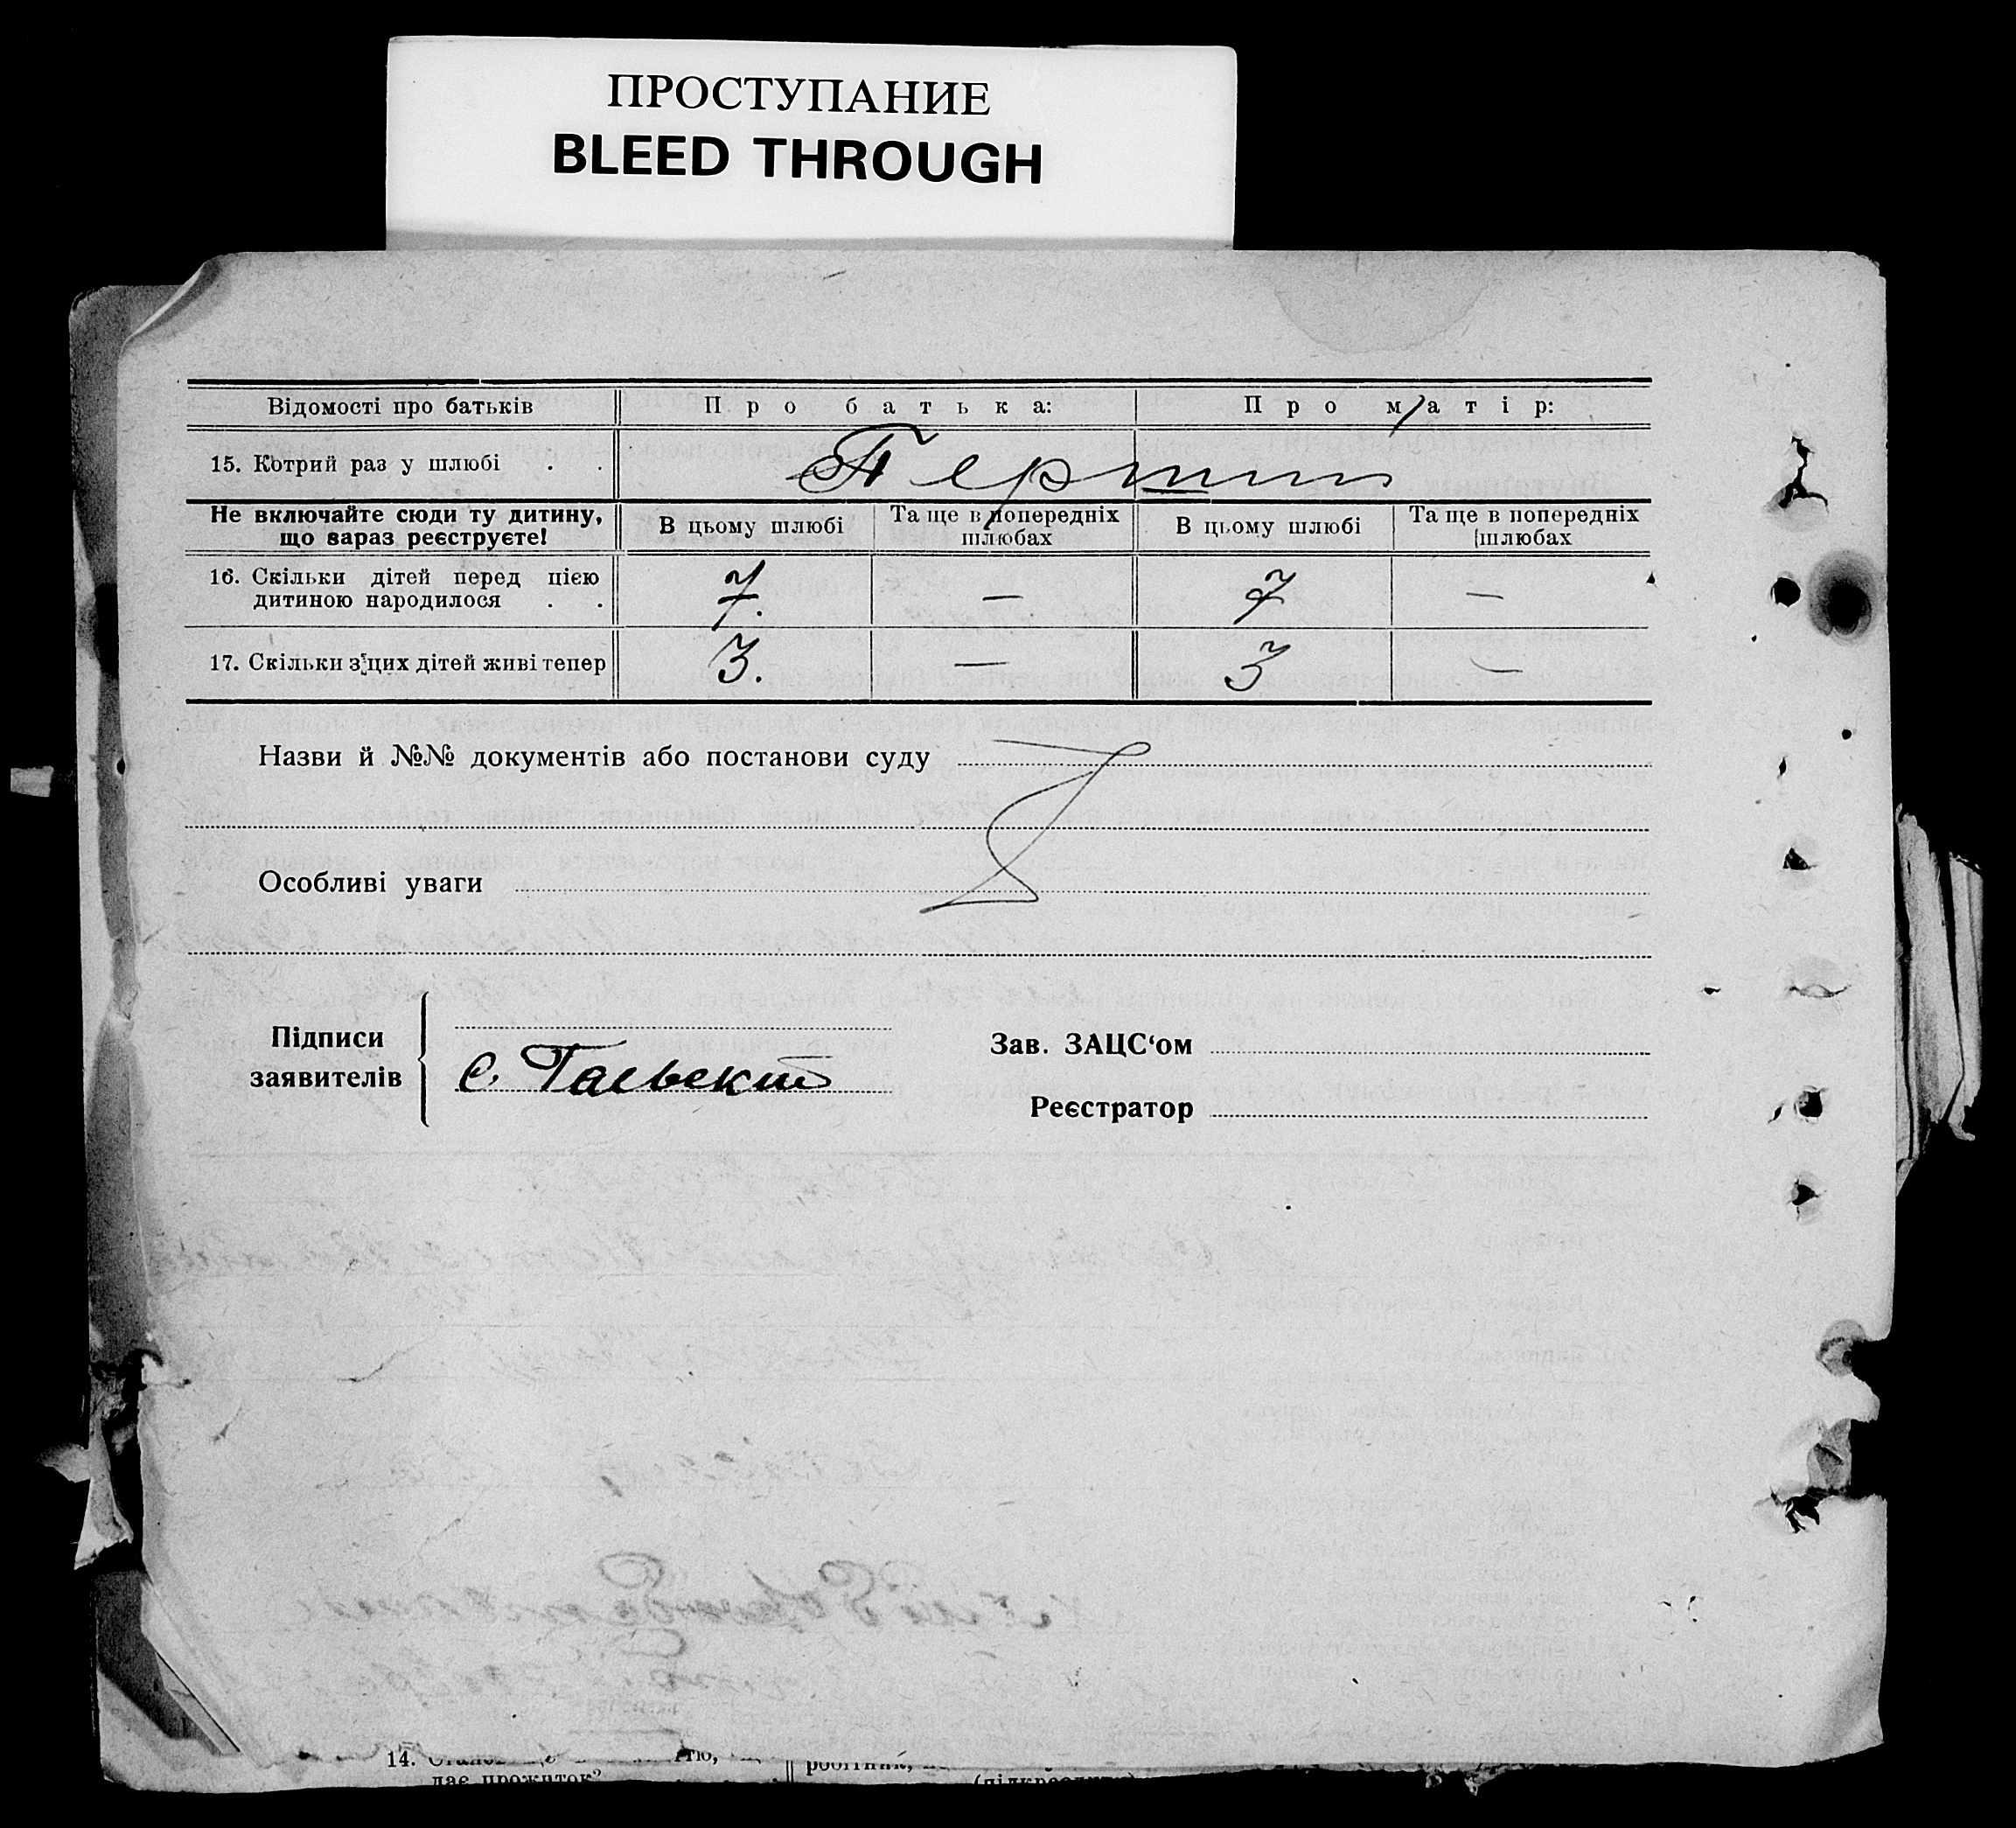 ПРОСТУПАНИЕ
BLEED THROUGH
Відомості про батьків Про батька: Про матір:
15. Котрий раз у шлюбі . . Перший
Не включайте сюди ту дитину, що зараз реєструєте! В цьому шлюбі Та ще в попередніх шлюбах В цьому шлюбі Та ще в попередніх шлюбах
16. Скільки дітей перед цією дитиною народилося . . 7. — 7 —
17. Скільки з цих дітей живі тепер 3. — 3 —
Назви й №№ документів або постанови суду
Особливі уваги
Підписи заявителів
С. Гаевский
Зав. ЗАЦС‘ом
Реєстратор
14.
дає прожиток?